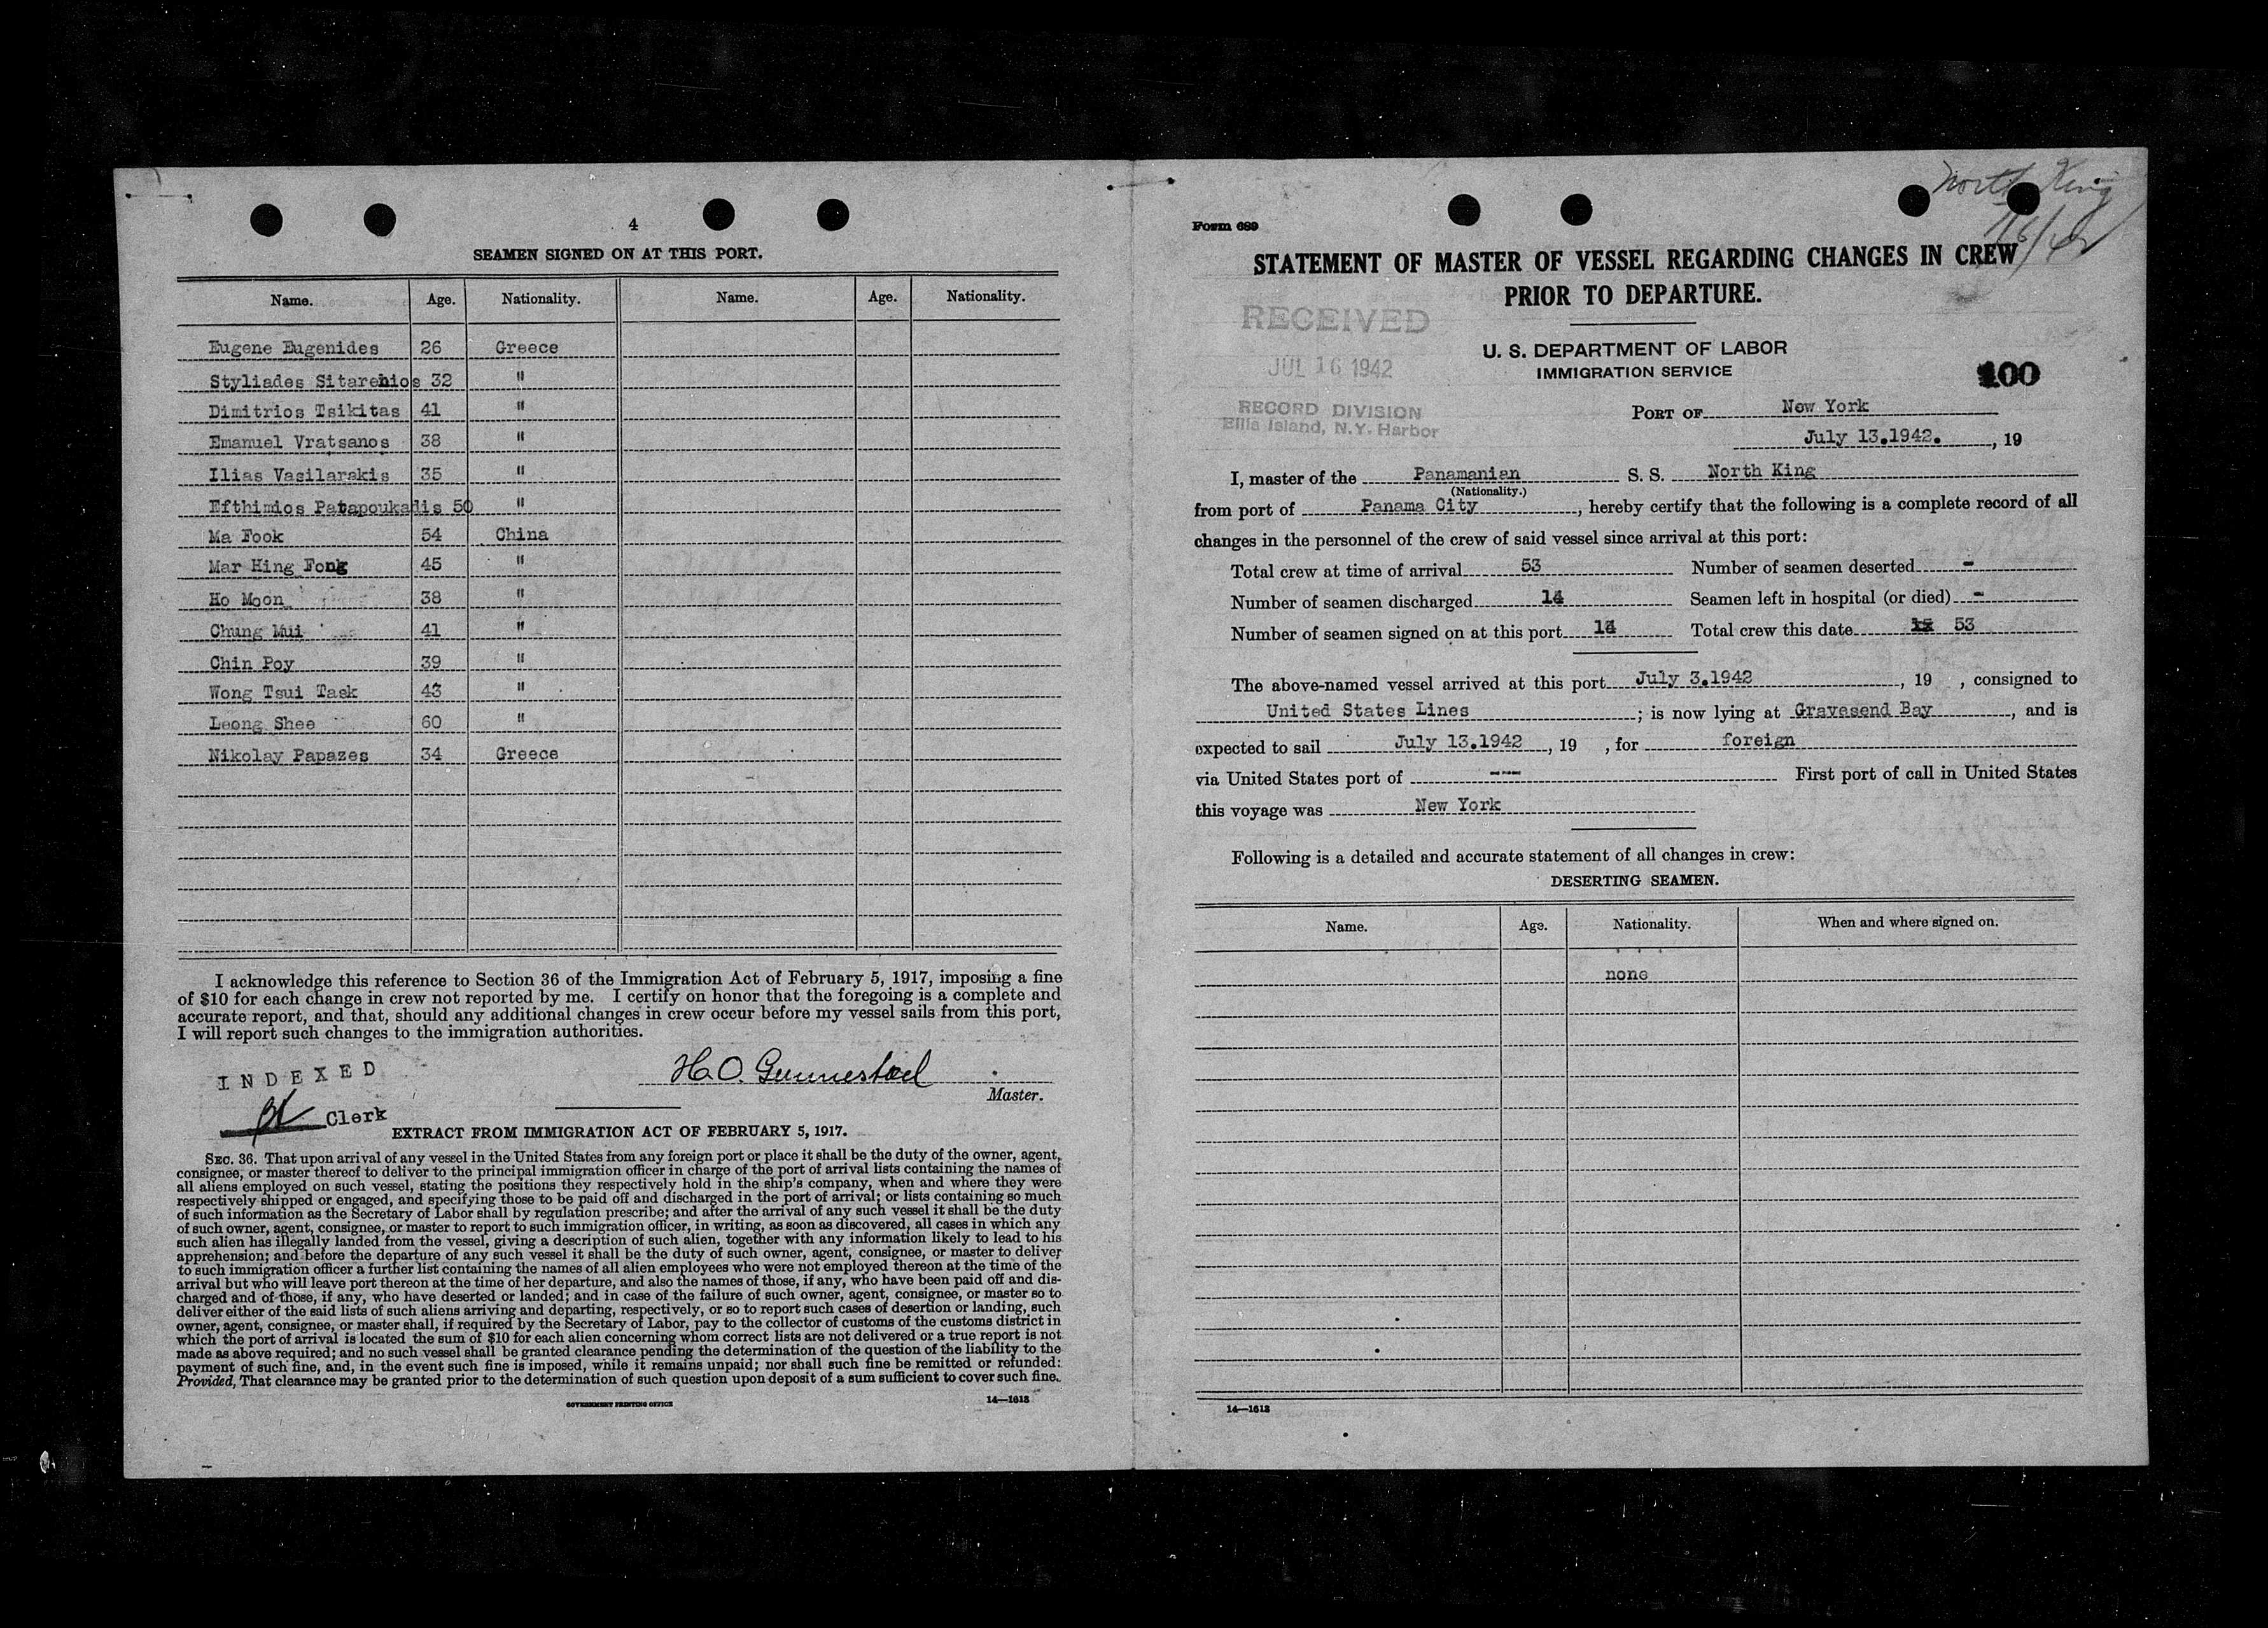 4
SEAMEN SIGNED ON AT THIS PORT.
Name. Age. Nationality. Name. Age. Nationality.
Eugene Eugenides 26 Greece
Styliades Sitarenios 32 "
Dimitrios Tsikitas 41 "
Emanuel Vratsanos 38 "
Ilias Vasilarakis 35 "
Efthimios Patapoukadis 50 "
Ma Fook 54 China
Mar Hing Fong 45 "
Ho Moon 38 "
Chung Mui 41 "
Chin Poy 39 "
Wong Tsui Task 43 "
Leong Shee 60 "
Nikolay Papazes 34 Greece
I acknowledge this reference to Section 36 of the Immigration Act of February 5, 1917, imposing a fine
of $10 for each change in crew not reported by me. I certify on honor that the foregoing is a complete and
accurate report, and that, should any additional changes in crew occur before my vessel sails from this port,
I will report such changes to the immigration authorities.
INDEXED
H.O. Gunnestad
Master.
Clerk
EXTRACT FROM IMMIGRATION ACT OF FEBRUARY 5, 1917.
SEC. 36. That upon arrival of any vessel in the United States from any foreign port or place it shall be the duty of the owner, agent,
consignee, or master thereof to deliver to the principal immigration officer in charge of the port of arrival lists containing the names of
all aliens employed on such vessel, stating the positions they respectively hold in the ship's company, when and where they were
respectively shipped or engaged, and specifying those to be paid off and discharged in the port of arrival; or lists containing so much
of such information as the Secretary of Labor shall by regulation prescribe; and after the arrival of any such vessel it shall be the duty
of such owner, agent, consignee, or master to report to such immigration officer, in writing, as soon as discovered, all cases in which any
such alien has illegally landed from the vessel, giving a description of such alien, together with any information likely to lead to his
apprehension; and before the departure of any such vessel it shall be the duty of such owner, agent, consignee, or master to deliver
to such immigration officer a further list containing the names of all alien employees who were not employed thereon at the time of the
arrival but who will leave port thereon at the time of her departure, and also the names of those, if any, who have been paid off and dis-
charged and of those, if any, who have deserted or landed; and in case of the failure of such owner, agent, consignee, or master so to
deliver either of the said lists of such aliens arriving and departing, respectively, or so to report such cases of desertion or landing, such
owner, agent, consignee, or master shall, if required by the Secretary of Labor, pay to the collector of customs of the customs district in
which the port of arrival is located the sum of $10 for each alien concerning whom correct lists are not delivered or a true report is not
made as above required; and no such vessel shall be granted clearance pending the determination of the question of the liability to the
payment of such fine, and, in the event such fine is imposed, while it remains unpaid; nor shall such fine be remitted or refunded:
Provided, That clearance may be granted prior to the determination of such question upon deposit of a sum sufficient to cover such fine.
GOVERNMENT PRINTING OFFICE 14—1613
North King
Form 689
STATEMENT OF MASTER OF VESSEL REGARDING CHANGES IN CREW
PRIOR TO DEPARTURE.
RECEIVED
JUL 16 1942
RECORD DIVISION
Ellis Island, N.Y. Harbor
U. S. DEPARTMENT OF LABOR
IMMIGRATION SERVICE
100
PORT OF New York
July 13.1942. , 19
I, master of the Panamanian S. S. North King
(Nationality.)
from port of Panama City, hereby certify that the following is a complete record of all
changes in the personnel of the crew of said vessel since arrival at this port:
Total crew at time of arrival 53 Number of seamen deserted -
Number of seamen discharged 14 Seamen left in hospital (or died) -
Number of seamen signed on at this port 14 Total crew this date 53
The above-named vessel arrived at this port July 3.1942, 19 , consigned to
United States Lines; is now lying at Gravesend Bay, and is
expected to sail July 13.1942, 19 , for foreign
via United States port of --- First port of call in United States
this voyage was New York
Following is a detailed and accurate statement of all changes in crew:
DESERTING SEAMEN.
Name. Age. Nationality. When and where signed on.
none
14—1613